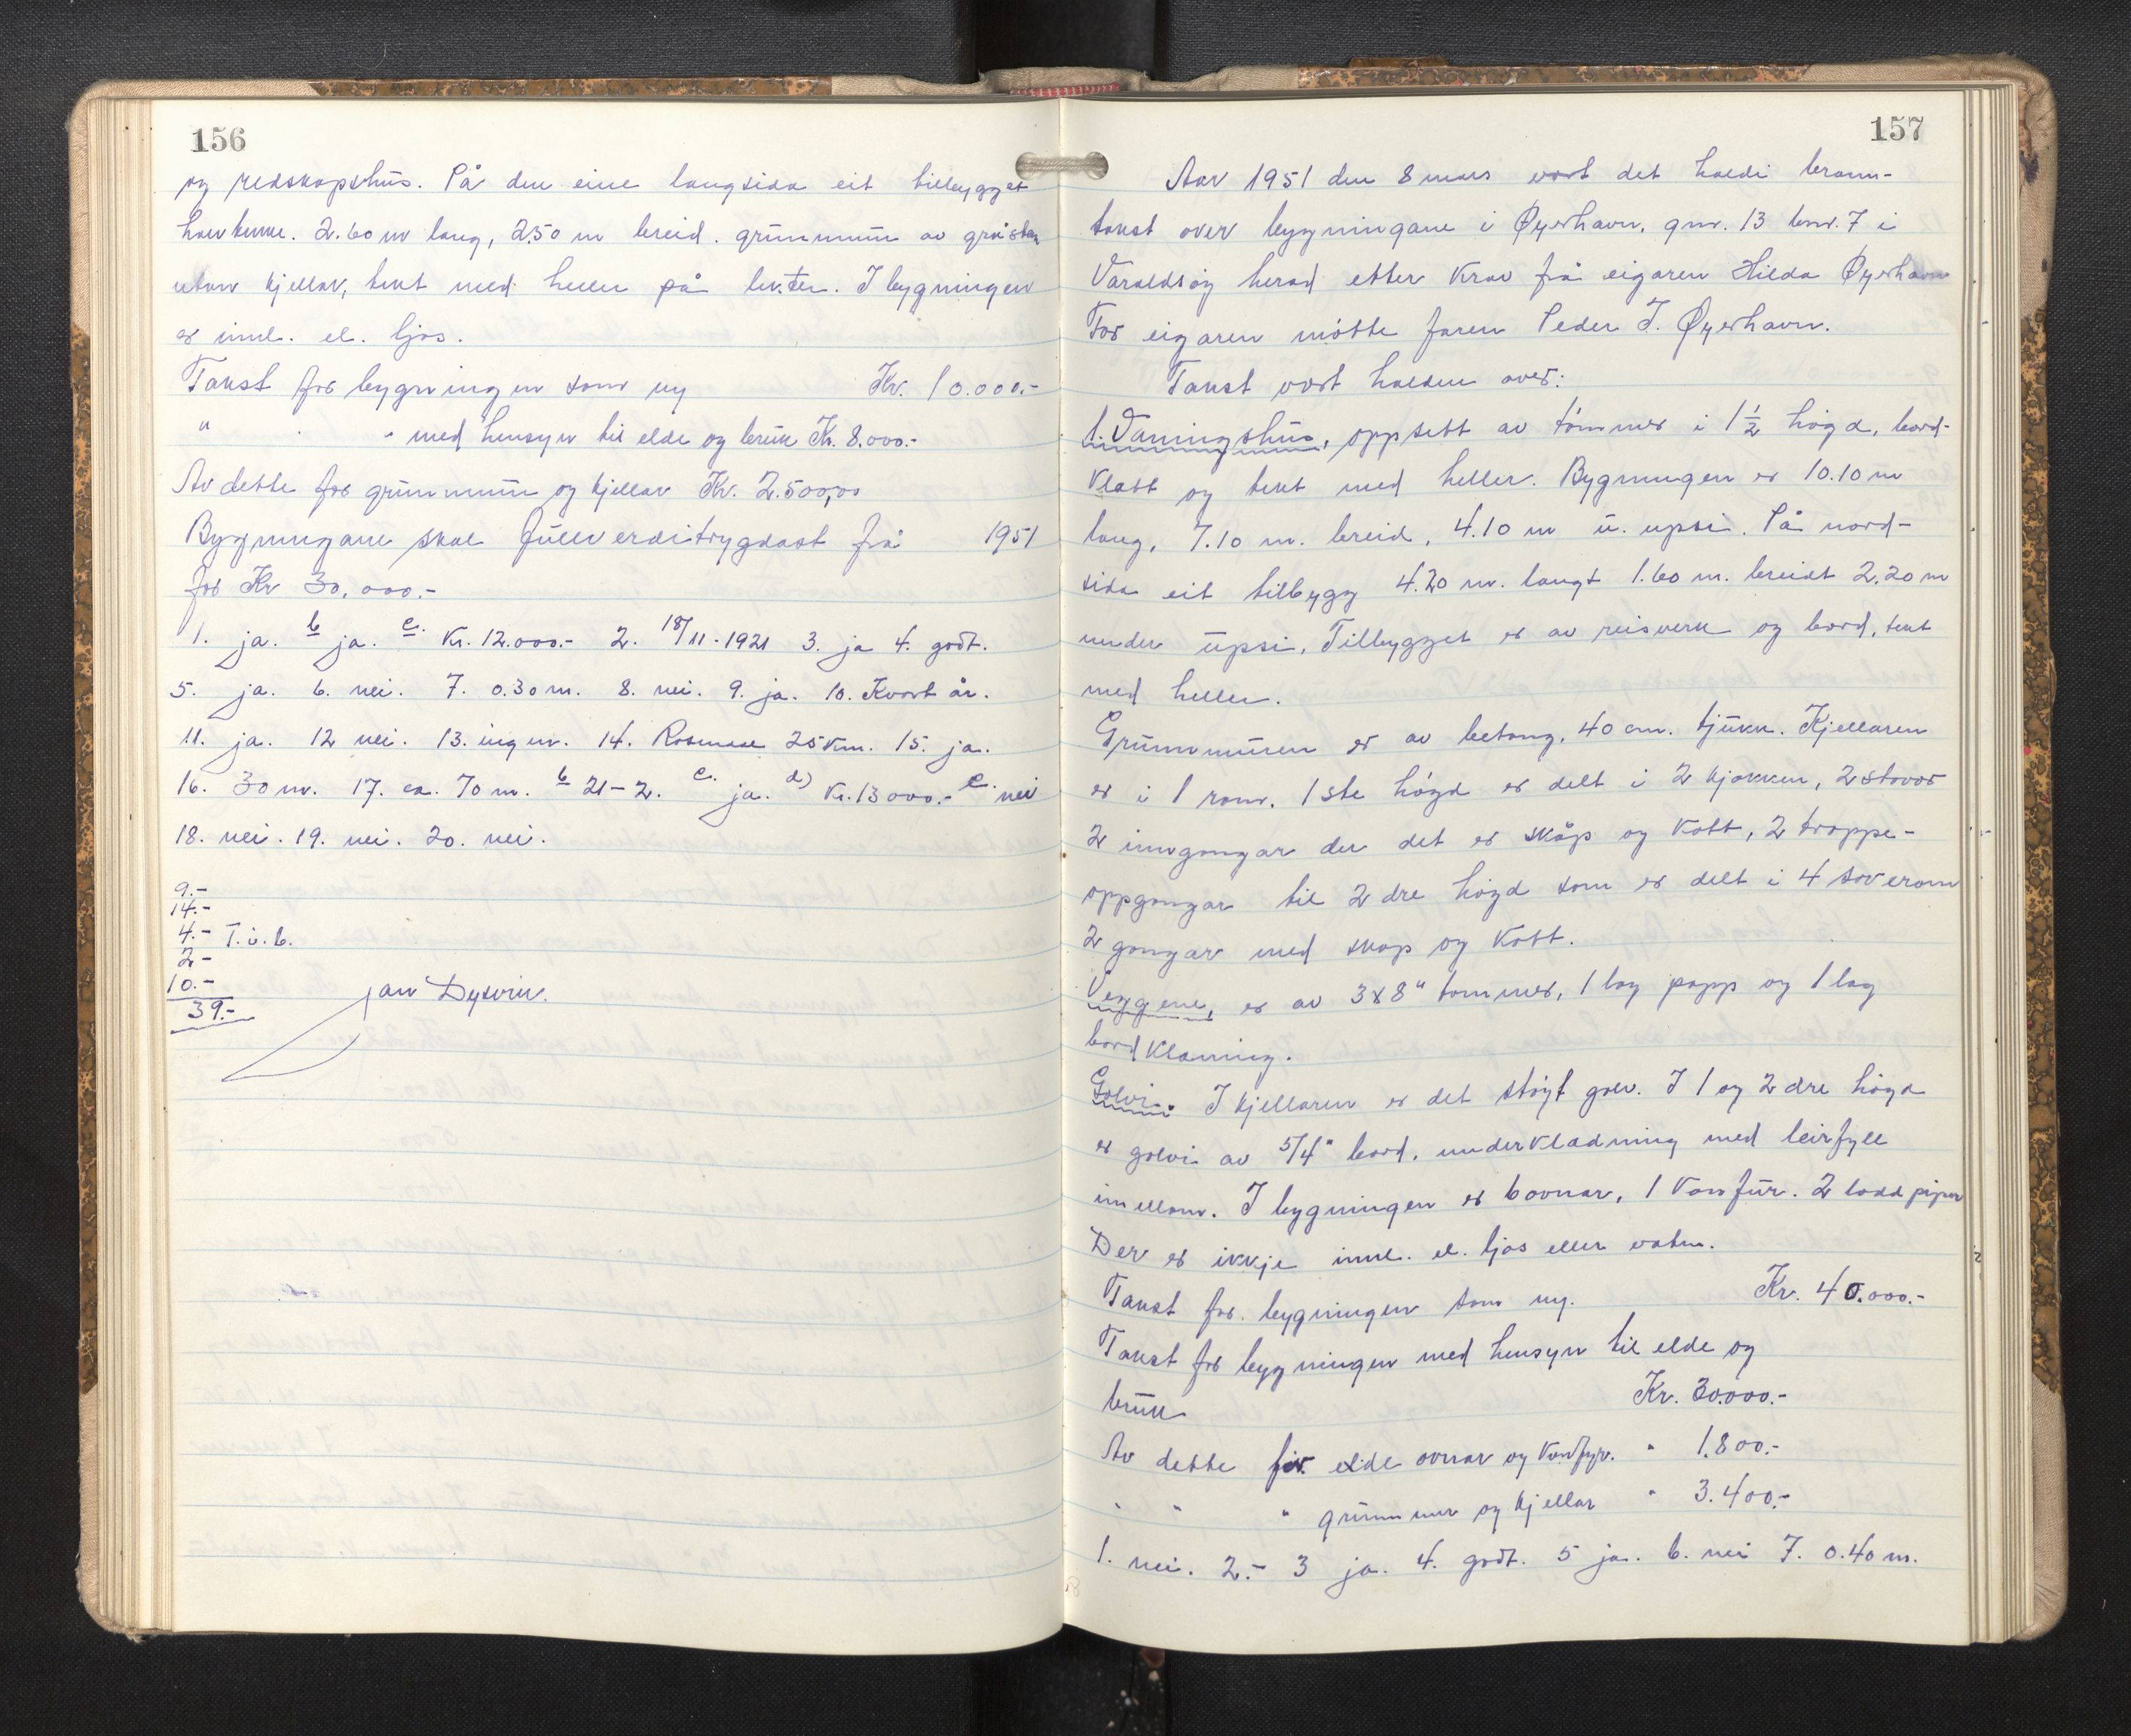 156
og redskapshus. På den eine langsida eit tilbygget
2.60 m lang, 2.50 m breid. grunnmur av gråstein
utan kjellar, tekt med heller på lekter. I bygningen
er innl. el. ljos.
Takst for bygningen som ny Kr. 10.000.-
" " med hensyn til elde og bruk Kr. 8.000.-
Av dette for grunnmur og kjellar Kr. 2.500,00
Bygningane skal fullverditrygdast frå 1951
for Kr 30.000.-
1. ja. b ja. c. Kr. 12.000.- 2. 18/11-1921 3. ja 4. godt.
5. ja. 6. nei. 7. 0.30 m. 8. nei. 9. ja. 10. Kvart år.
11. ja. 12 nei. 13. ingen. 14. Rosendal 25 km. 15. ja.
16. 30 m. 17. ca. 70 m. b 21-2. c. ja. d) Kr. 13000.- e. nei
18. nei. 19. nei. 20. nei.
9.-
14.-
4.- T.u.b.
2-
10.-
39.-
Jan Dysvik.
157
Aar 1951 den 8 mars vart det haldi brann-
takst over bygningane i Øyerhavn, gnr. 13 bnr. 7 i
Varaldsøy herad etter krav frå eigaren Hilda Øyerhavn
For eigaren møtte faren Peder J. Øyerhavn.
Takst vart halden over:
1. Vaningshus, oppsett av tømmer i 1½ høgd, bord-
klatt og tekt med heller. Bygningen er 10.10 m
lang, 7.10 m. breid, 4.10 m u. upsi. På nord-
sida eit tilbygg 4.20 m. langt 1.60 m. breidt 2.20 m
under upsi. Tilbygget er av reisverk og bord, tekt
med heller.
Grunnmuren er av betong, 40 cm. tjukk. Kjellaren
er i 1 rom. 1ste høgd er delt i 2 kjøkken, 2 stovor
2 inngongar der det er skåp og kott, 2 troppe-
oppgongar til 2 dre høgd som er delt i 4 soverom
2 gongar med skap og kott.
Veggene, er av 3x8" tømmer, 1 lag papp og 1 lag
bordklæning.
Golvi. I kjellaren er det støypt golv. I 1 og 2 dre høgd
er golvi av 5/4" bord, underkladning med leirfyll
imellom. I bygningen er 6 ovnar, 1 komfur. 2 piper
Der er ikkje innl. el. ljos eller vatn.
Takst for bygningen som ny. Kr. 40.000.-
Takst for bygningen med hensyn til elde og
bruk Kr. 30000.-
Av dette for elde ovnar og komfyr. " 1.800.-
" " " grunnmur og kjellar " 3.400.-
1. nei. 2.- 3 ja. 4. godt. 5 ja. 6. nei 7. 0.40 m.